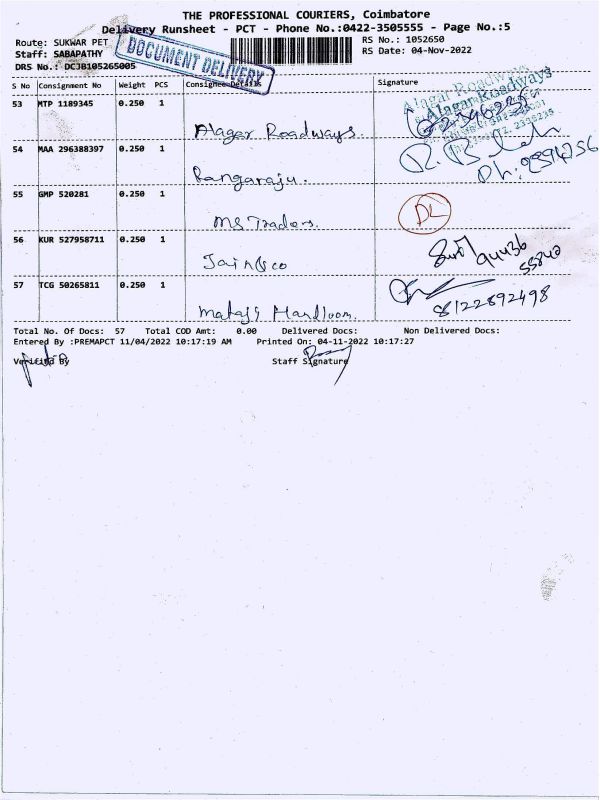 THE PROFESSIONAL COURIERS, Coimbatore
Delivery Runsheet - PCT - Phone No.:0422-3505555 - Page No.:5
Route: SUKWAR PET
RS No.: 1052650
Staff: SABAPATHY
RS Date: 04-Nov-2022
DRS No.: DCJB105265005
DOCUMENT DELIVERY
S No Consignment No Weight PCS Consignee Details Signature
53 MTP 1189345 0.250 1
Alagar Roadways
Alagar Roadways
Alagar Roadways
54 MAA 296388397 0.250 1
Rangaraju.
55 GMP 520281 0.250 1
MS Traders.
DL
56 KUR 527958711 0.250 1
Jain & co
94436
57 TCG 50265811 0.250 1
Mataji Handloom.
8122892498
Total No. Of Docs: 57 Total COD Amt: 0.00 Delivered Docs: Non Delivered Docs:
Entered By :PREMAPCT 11/04/2022 10:17:19 AM Printed On: 04-11-2022 10:17:27
Verified By Staff Signature